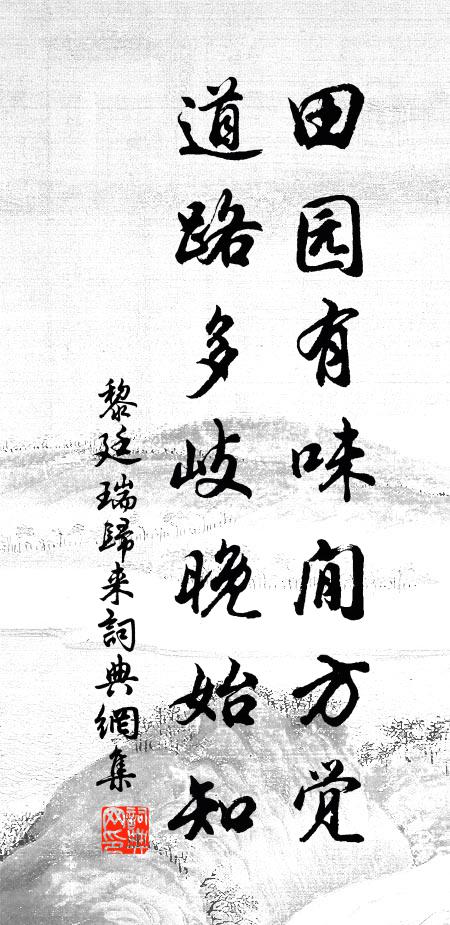 田园有味闲方觉
道路多岐晚始知
黎廷瑞歸来詞典網集